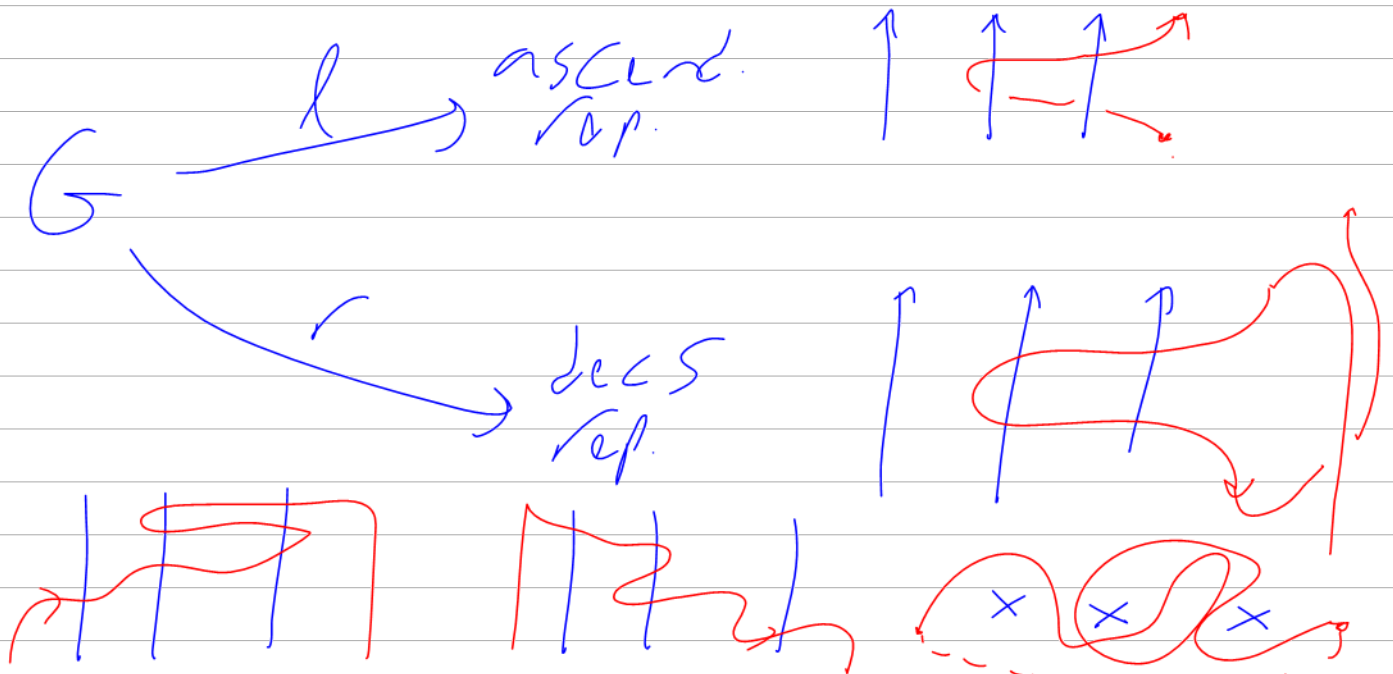 l
ascend.
rep.
G
r
decs
rep.